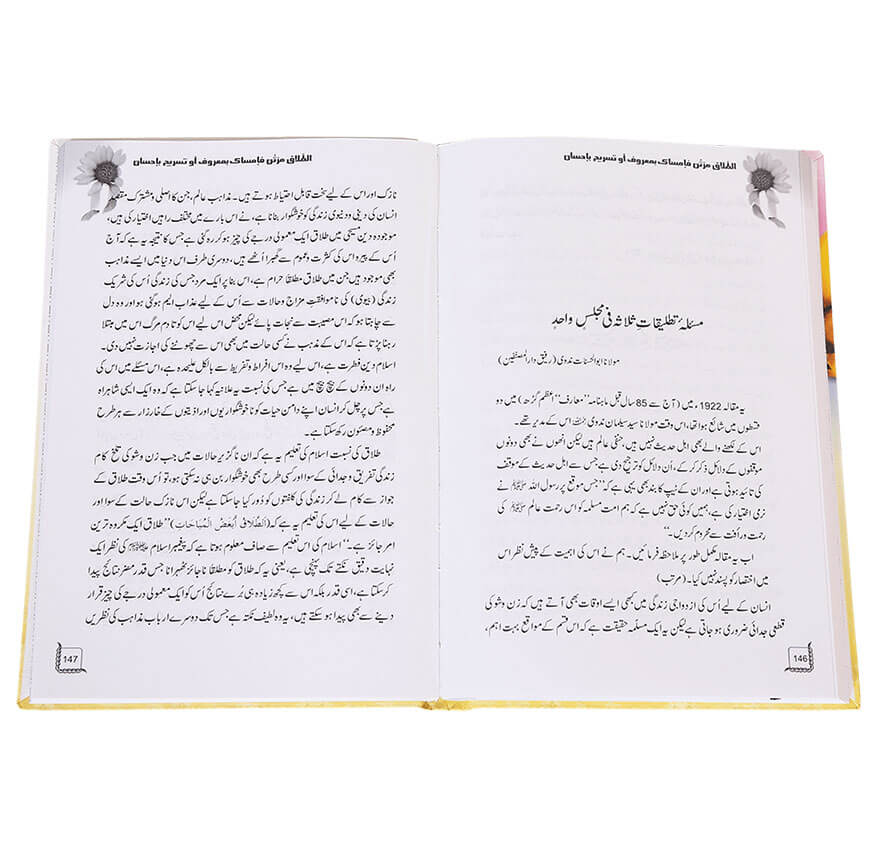 الطلاق مرتٰن فإمساك بمعروف أو تسريح بإحسان
مسئلۂ تطلیقاتِ ثلاثہ فی مجلسِ واحد
مولانا ابوالحسنات ندوی (رفیق دارالمصنفین)
یہ مقالہ 1922ء میں (آج سے 85 سال قبل ماہنامہ ”معارف“ اعظم گڑھ) میں دو
قسطوں میں شائع ہوا تھا، اس وقت مولانا سید سلیمان ندوی رحمہ اللہ اس کے مدیر تھے۔
اس کے لکھنے والے بھی اہل حدیث نہیں ہیں، حنفی عالم ہیں لیکن انھوں نے بھی دونوں
موقفوں کے دلائل ذکر کر کے، اُن دلائل کو ترجیح دی ہے جس سے اہل حدیث کے موقف
کی تائید ہوتی ہے اور ان کے ٹیپ کا بند بھی یہی ہے کہ ”جس موقع پر رسول اللہ ﷺ نے
نرمی اختیار کی ہے، ہمیں کوئی حق نہیں ہے کہ ہم امت مسلمہ کو اس رحمتِ عالم ﷺ کی
رحمت و رأفت سے محروم کر دیں۔“
اب یہ مقالہ مکمل طور پر ملاحظہ فرمائیں۔ ہم نے اس کی اہمیت کے پیش نظر اس
میں اختصار کو پسند نہیں کیا۔ (مرتب)
انسان کے لیے اُس کی ازدواجی زندگی میں کبھی ایسے اوقات بھی آتے ہیں کہ زن و شو کی
قطعی جدائی ضروری ہو جاتی ہے لیکن یہ ایک مسلّمہ حقیقت ہے کہ اس قسم کے مواقع بہت اہم،
146
الطلاق مرتٰن فإمساك بمعروف أو تسريح بإحسان
نازک اور اس کے لیے سخت قابل احتیاط ہوتے ہیں۔ مذاہب عالم، جن کا اصلی و مشترک مقصد
انسان کی دینی و دنیوی زندگی کو خوشگوار بنانا ہے، نے اس بارے میں مختلف راہیں اختیار کی ہیں،
موجودہ دین مسیحی میں طلاق ایک معمولی درجے کی چیز ہو کر رہ گئی ہے جس کا نتیجہ یہ ہے کہ آج
اُس کے پیرو اس کی کثرت و عموم سے گھبرا اُٹھے ہیں، دوسری طرف اس دنیا میں ایسے مذاہب
بھی موجود ہیں جن میں طلاق مطلقاً حرام ہے، اس بنا پر ایک مرد جس کی زندگی اُس کی شریک
زندگی (بیوی) کی ناموافقتِ مزاج و حالات سے اُس کے لیے عذاب الیم ہو گئی ہو اور وہ دل
سے چاہتا ہو کہ اس مصیبت سے نجات پائے لیکن محض اس لیے اُس کو تادم مرگ اس میں مبتلا
رہنا پڑتا ہے کہ اس کے مذہب نے کسی حالت میں بھی اس سے چھوٹنے کی اجازت نہیں دی۔
اسلام دین فطرت ہے، اس لیے وہ اس افراط و تفریط سے بالکل علیحدہ ہے، اس مسئلے میں اس کی
راہ ان دونوں کے بیچ بیچ میں ہے جس کی نسبت یہ علانیہ کہا جا سکتا ہے کہ وہ ایک ایسی شاہراہ
ہے جس پر چل کر انسان اپنے دامن حیات کو ناخوشگواریوں اور اذیتوں کے خارزار سے ہر طرح
محفوظ و مصئون رکھ سکتا ہے۔
طلاق کی نسبت اسلام کی تعلیم یہ ہے کہ ان ناگزیر حالات میں جب زن و شو کی تلخ کام
زندگی تفریق و جدائی کے سوا اور کسی طرح بھی خوشگوار بن ہی نہ سکتی ہو، تو اُس وقت طلاق کے
جواز سے کام لے کر زندگی کی کلفتوں کو دُور کیا جا سکتا ہے لیکن اس نازک حالت اور اس کے سوا
حالات کے لیے اس کی تعلیم یہ ہے کہ (اَلطَّلَاقُ أَبْغَضُ الْمُبَاحَاتِ) ”طلاق ایک مکروہ ترین
امر جائز ہے۔“ اسلام کی اس تعلیم سے صاف معلوم ہوتا ہے کہ پیغمبر اسلام ﷺ کی نظر ایک
نہایت دقیق نکتے تک پہنچی ہے، یعنی یہ کہ طلاق کو مطلقاً ناجائز ٹھہرانا جس قدر مضر نتائج پیدا
کر سکتا ہے، اسی قدر بلکہ اس سے کچھ زیادہ ہی بُرے نتائج اُس کو ایک معمولی درجے کی چیز قرار
دینے سے بھی پیدا ہو سکتے ہیں، یہ وہ لطیف نکتہ ہے جس تک دوسرے ارباب مذاہب کی نظریں
147